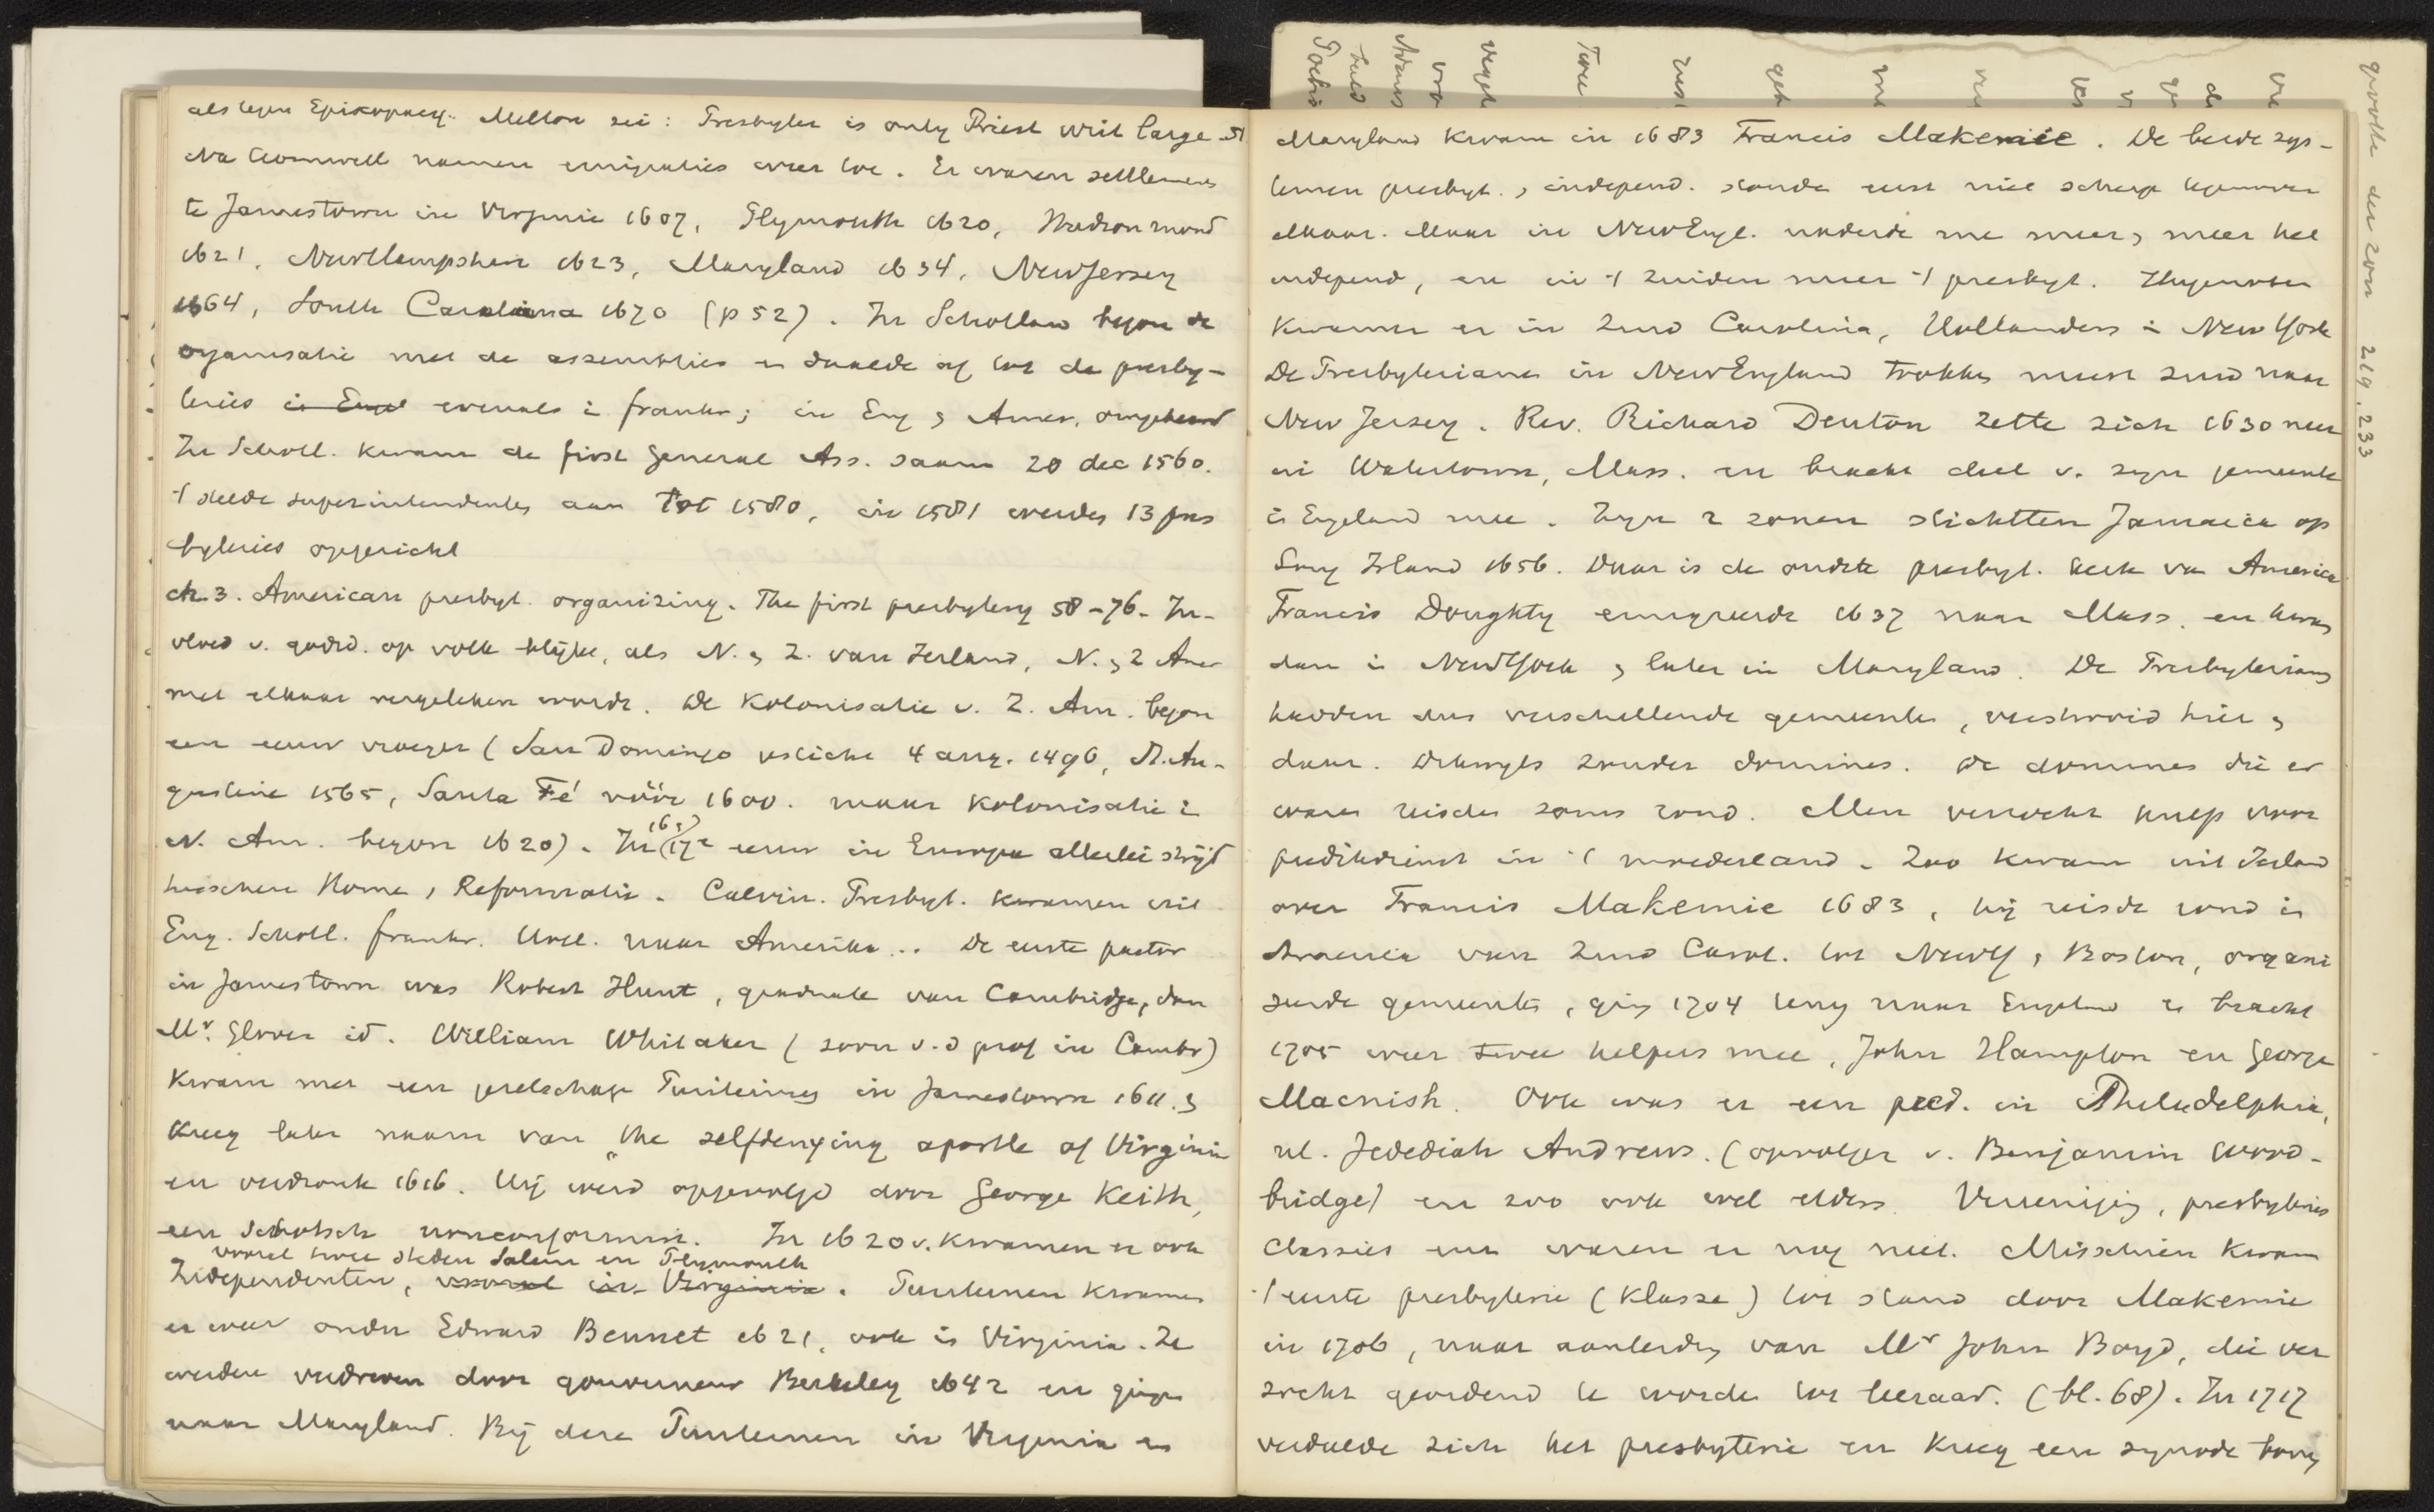 als tegen Episcopacy. Milton zei: Presbyter is only Priest writ large 51
Na Cromwell namen emigraties weer toe. Er waren settlements
te Jamestown in Virginie 1607, Plymouth 1620, Hudson mond
1621, NewHampshire 1623, Maryland 1634, NewJersey
1664, South Carolina 1670 (p 52). In Schotland begon de
organisatie met de assemblies en daalde af tot de presby-
teries in Engel evenals i frankr; in Eng & Amer. omgekeerd
In Schotl. kwam de first General Ass. saam 20 dec 1560.
't stelde superintendents aan tot 1580, in 1581 werden 13 pres
byteries opgericht
ch. 3. American presbyt. organizing. The first presbytery 58-76. In-
vloed v. godsd. op volk blijkt, als N. & Z. van Ierland, N. & Z Amer
met elkaar vergeleken wordt. De Kolonisatie v. Z. Am. begon
een eeuw vroeger (San Domingo gesticht 4 aug. 1496, St. Au-
gustine 1565, Santa Fé vóór 1600. maar Kolonisatie i
N. Am. begon 1620). In (16e) 17e eeuw in Europa allerlei strijd
tusschen Rome & Reformatie. Calvin. Presbyt. kwamen uit
Eng. Schotl. frankr. Holl. naar Amerika... De eerste pastor
in Jamestown was Robert Hunt, graduate van Cambridge, dan
Mr. Glover id. William Whitaker (zoon v.d prof in Cambr)
kwam met een gezelschap Puriteinen in Jamestown 1611. &
kreeg later naam van "the selfdenying apostle of Virginia
en verdronk 1616. Hij werd opgevolgd door George Keith,
een Schotsch nonconformist. In 1620 v. kwamen er ook
vooral twee steden Salem en Plymouth
Independenten, vooral in Virginia. Puriteinen kwamen
er weer onder Edward Bennet 1621, ook in Virginia. Ze
werden verdreven door gouverneur Berkeley 1642 en gingen
naar Maryland. Bij deze Puriteinen in Virginia en
Maryland kwam in 1683 Francis Makemie. De beide sys-
temen presbyt. & independ. stonden eerst niet scherp tegenover
elkaar. Maar in NewEngl. naderde me meer & meer het
independ, en in 't Zuiden meer 't presbyt. Hugenoten
kwamen er in Zuid Carolina, Hollanders i New York
De Presbyterians in NewEngland trokken meest zuid naar
New Jersey. Rev. Richard Denton zette zich 1630 neer
in Watertown, Mass. en bracht deel v. zijn gemeente
in Engeland mee. Zijn 2 zonen stichtten Jamaica op
Long Island 1656. Daar is de oudste presbyt. kerk van America
Francis Doughty emigreerde 1637 naar Mass. en kwam
dan in NewYork & later in Maryland. De Presbyterians
hadden dus verschillende gemeenten, verstrooid hier &
daar. Dikwijls zonder dominees. De dominees die er
waren reisden soms rond. Men verzocht hulp voor
predikdienst in 't moederland. Zoo kwam uit Ierland
over Francis Makemie 1683, hij reisde rond in
America van Zuid Carol. tot NewY & Boston, organi
seerde gemeenten, ging 1704 terug naar Engeland en bracht
1705 weer twee helpers mee, John Hampton en George
Macnish. Ook was er een pred. in Philadelphia,
nl. Jedediah Andrews. (opvolger v. Benjamin Wood-
bridge) en zoo ook wel elders. Vereeniging, presbyteries
Classies enz waren er nog niet. Misschien kwam
't eerste presbyterie (klasse) tot stand door Makemie
in 1706, naar aanleiding van Mr John Boyd, die ver
zocht geordend te worden tot leeraar. (bl. 68). In 1717
verdeelde zich het presbyterie en kreeg een synode boven
grootte der zon 219, 233